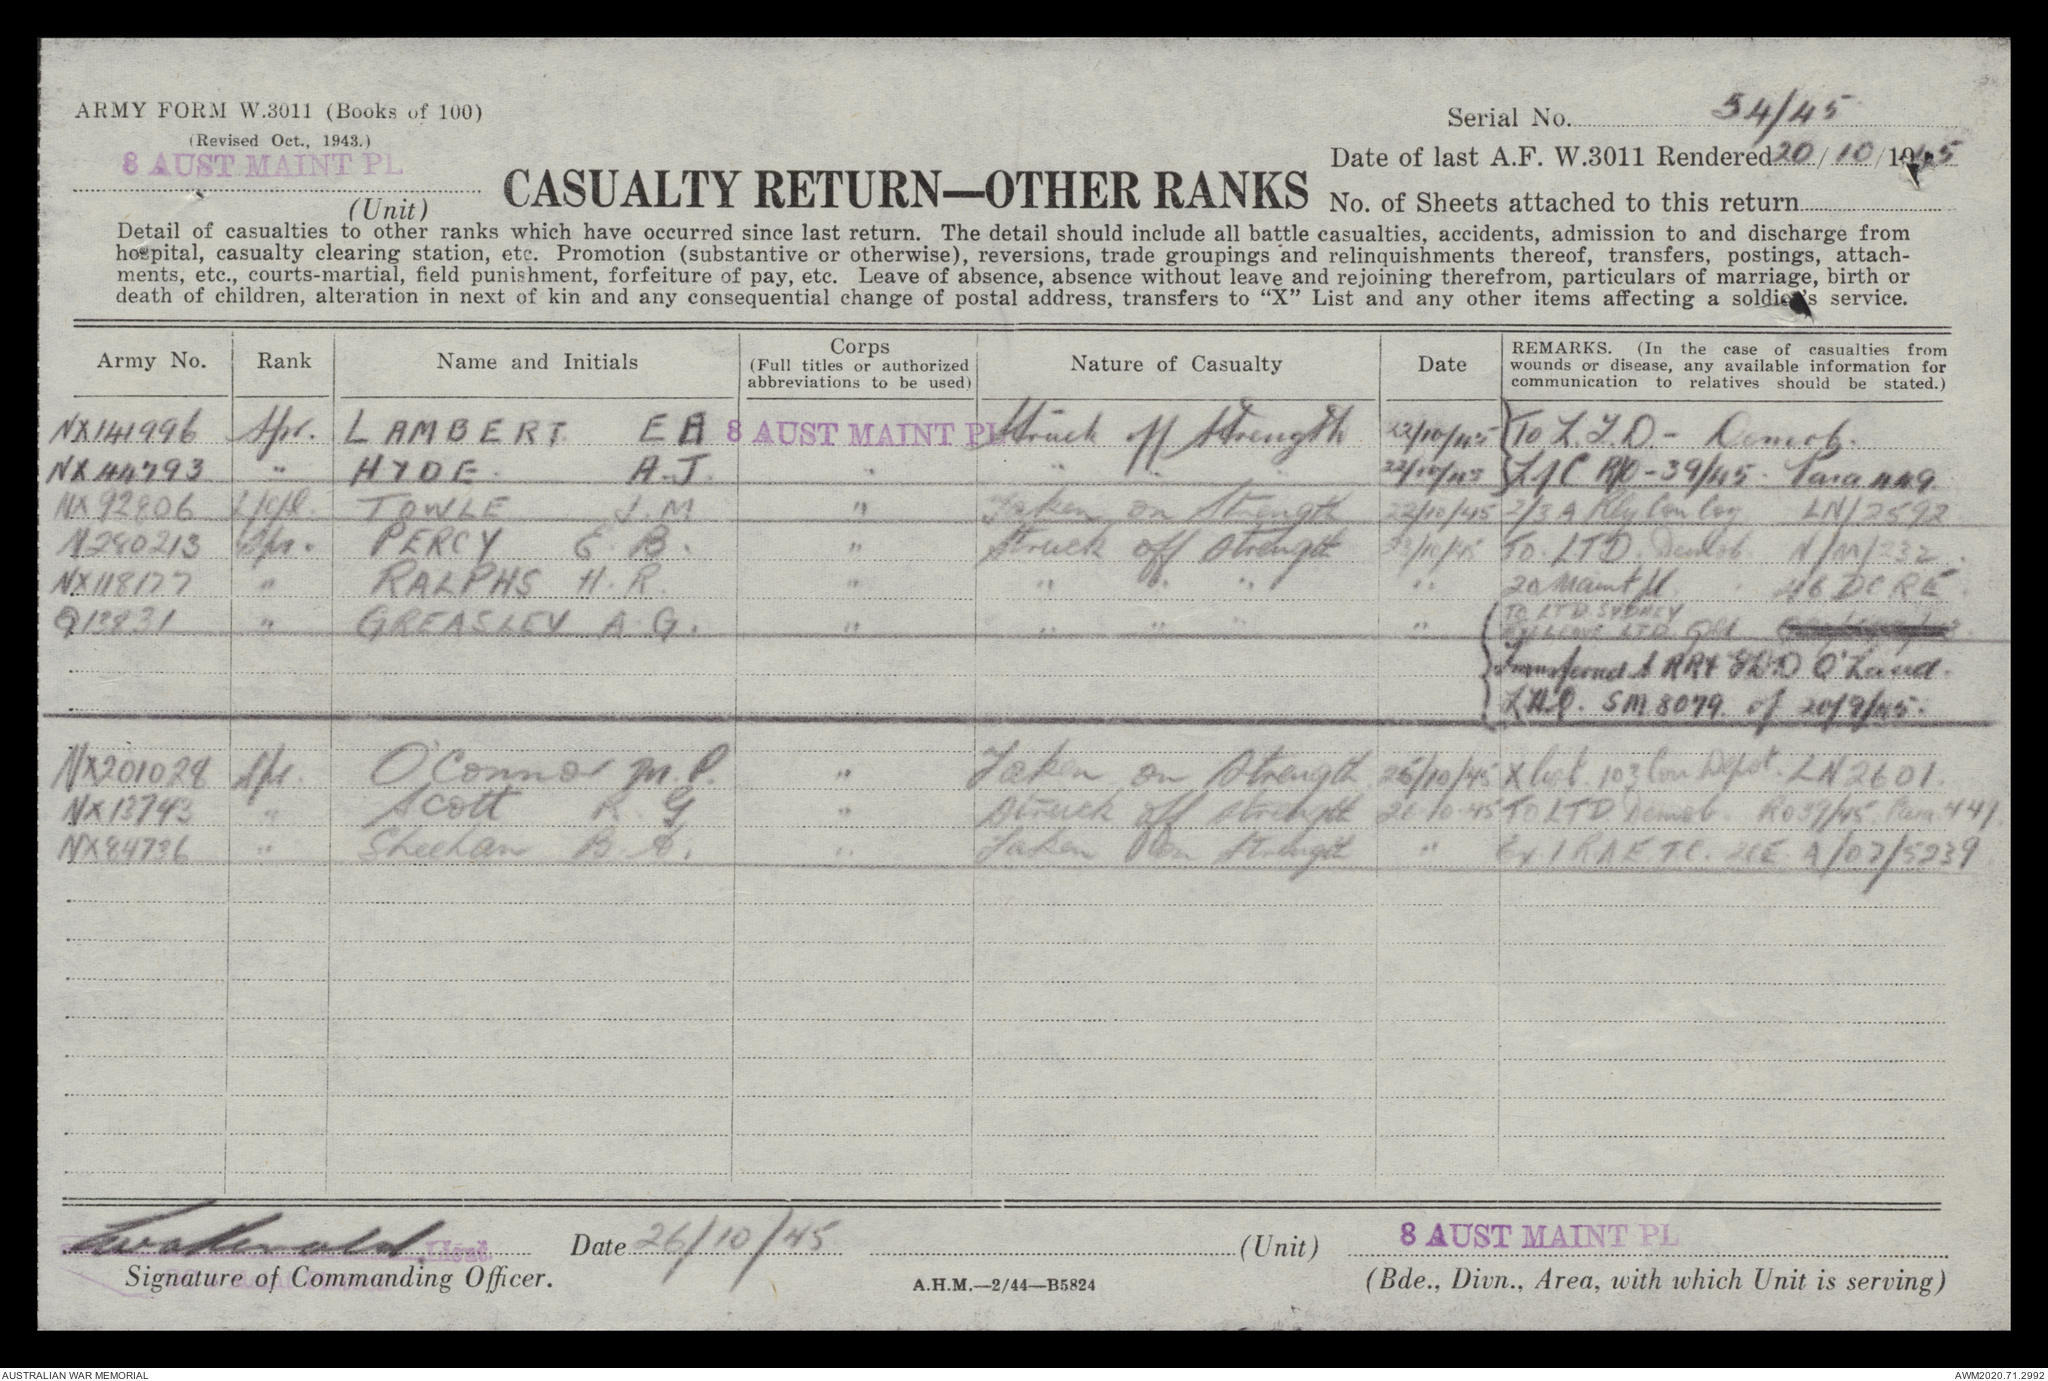 ARMY FORM W.3011 (Books of 100)
(Revised Oct., 1943.)
8 AUST MAINT PL
(Unit)
CASUALTY RETURN—OTHER RANKS
Serial No. 54/45
Date of last A.F. W.3011 Rendered 20/10/1945
No. of Sheets attached to this return
Detail of casualties to other ranks which have occurred since last return. The detail should include all battle casualties, accidents, admission to and discharge from
hospital, casualty clearing station, etc. Promotion (substantive or otherwise), reversions, trade groupings and relinquishments thereof, transfers, postings, attach-
ments, etc., courts-martial, field punishment, forfeiture of pay, etc. Leave of absence, absence without leave and rejoining therefrom, particulars of marriage, birth or
death of children, alteration in next of kin and any consequential change of postal address, transfers to “X” List and any other items affecting a soldier's service.
Army No. Rank Name and Initials Corps (Full titles or authorized abbreviations to be used) Nature of Casualty Date REMARKS. (In the case of casualties from wounds or disease, any available information for communication to relatives should be stated.)
NX141996 Spr. LAMBERT E 8 AUST MAINT PL Struck off Strength 22/10/45 To L.T.D - Demob.
NX44793 " HYDE. A.J. " " " " 22/10/45 R/O - 39/45. Para 449
NX92806 L/Cpl. TOWLE J.M " Taken on Strength 22/10/45 2/3 A Rly Con Coy LN/2592
N280213 Spr. PERCY E.B. " Struck off Strength 23/10/45 To. LTD. Demob. N/M/232.
NX118177 " RALPHS H.R. " " " " " 20 Maint Pl. 46 DCRE.
Q13831 " GREASLEY A.G. " " " " " TO LTD SYDNEY
LTD Qld
Transferred to RR+ GDD Q'Land.
SM 8079 of 20/9/45.
NX201028 Spr. O'Connor M.P. " Taken on Strength 25/10/45 X list. 103 Con Depot. LN2601.
NX13743 " Scott R.G " Struck off Strength 26-10-45 To LTD Demob. RO39/45. Para 441.
NX84736 " Sheehan B. " Taken on Strength " Ex 1 RAETC. A/02/5239
Lieut.
Signature of Commanding Officer.
Date 26/10/45
(Unit)
8 AUST MAINT PL
(Bde., Divn., Area, with which Unit is serving)
A.H.M.—2/44—B5824
AUSTRALIAN WAR MEMORIAL
AWM2020.71.2992